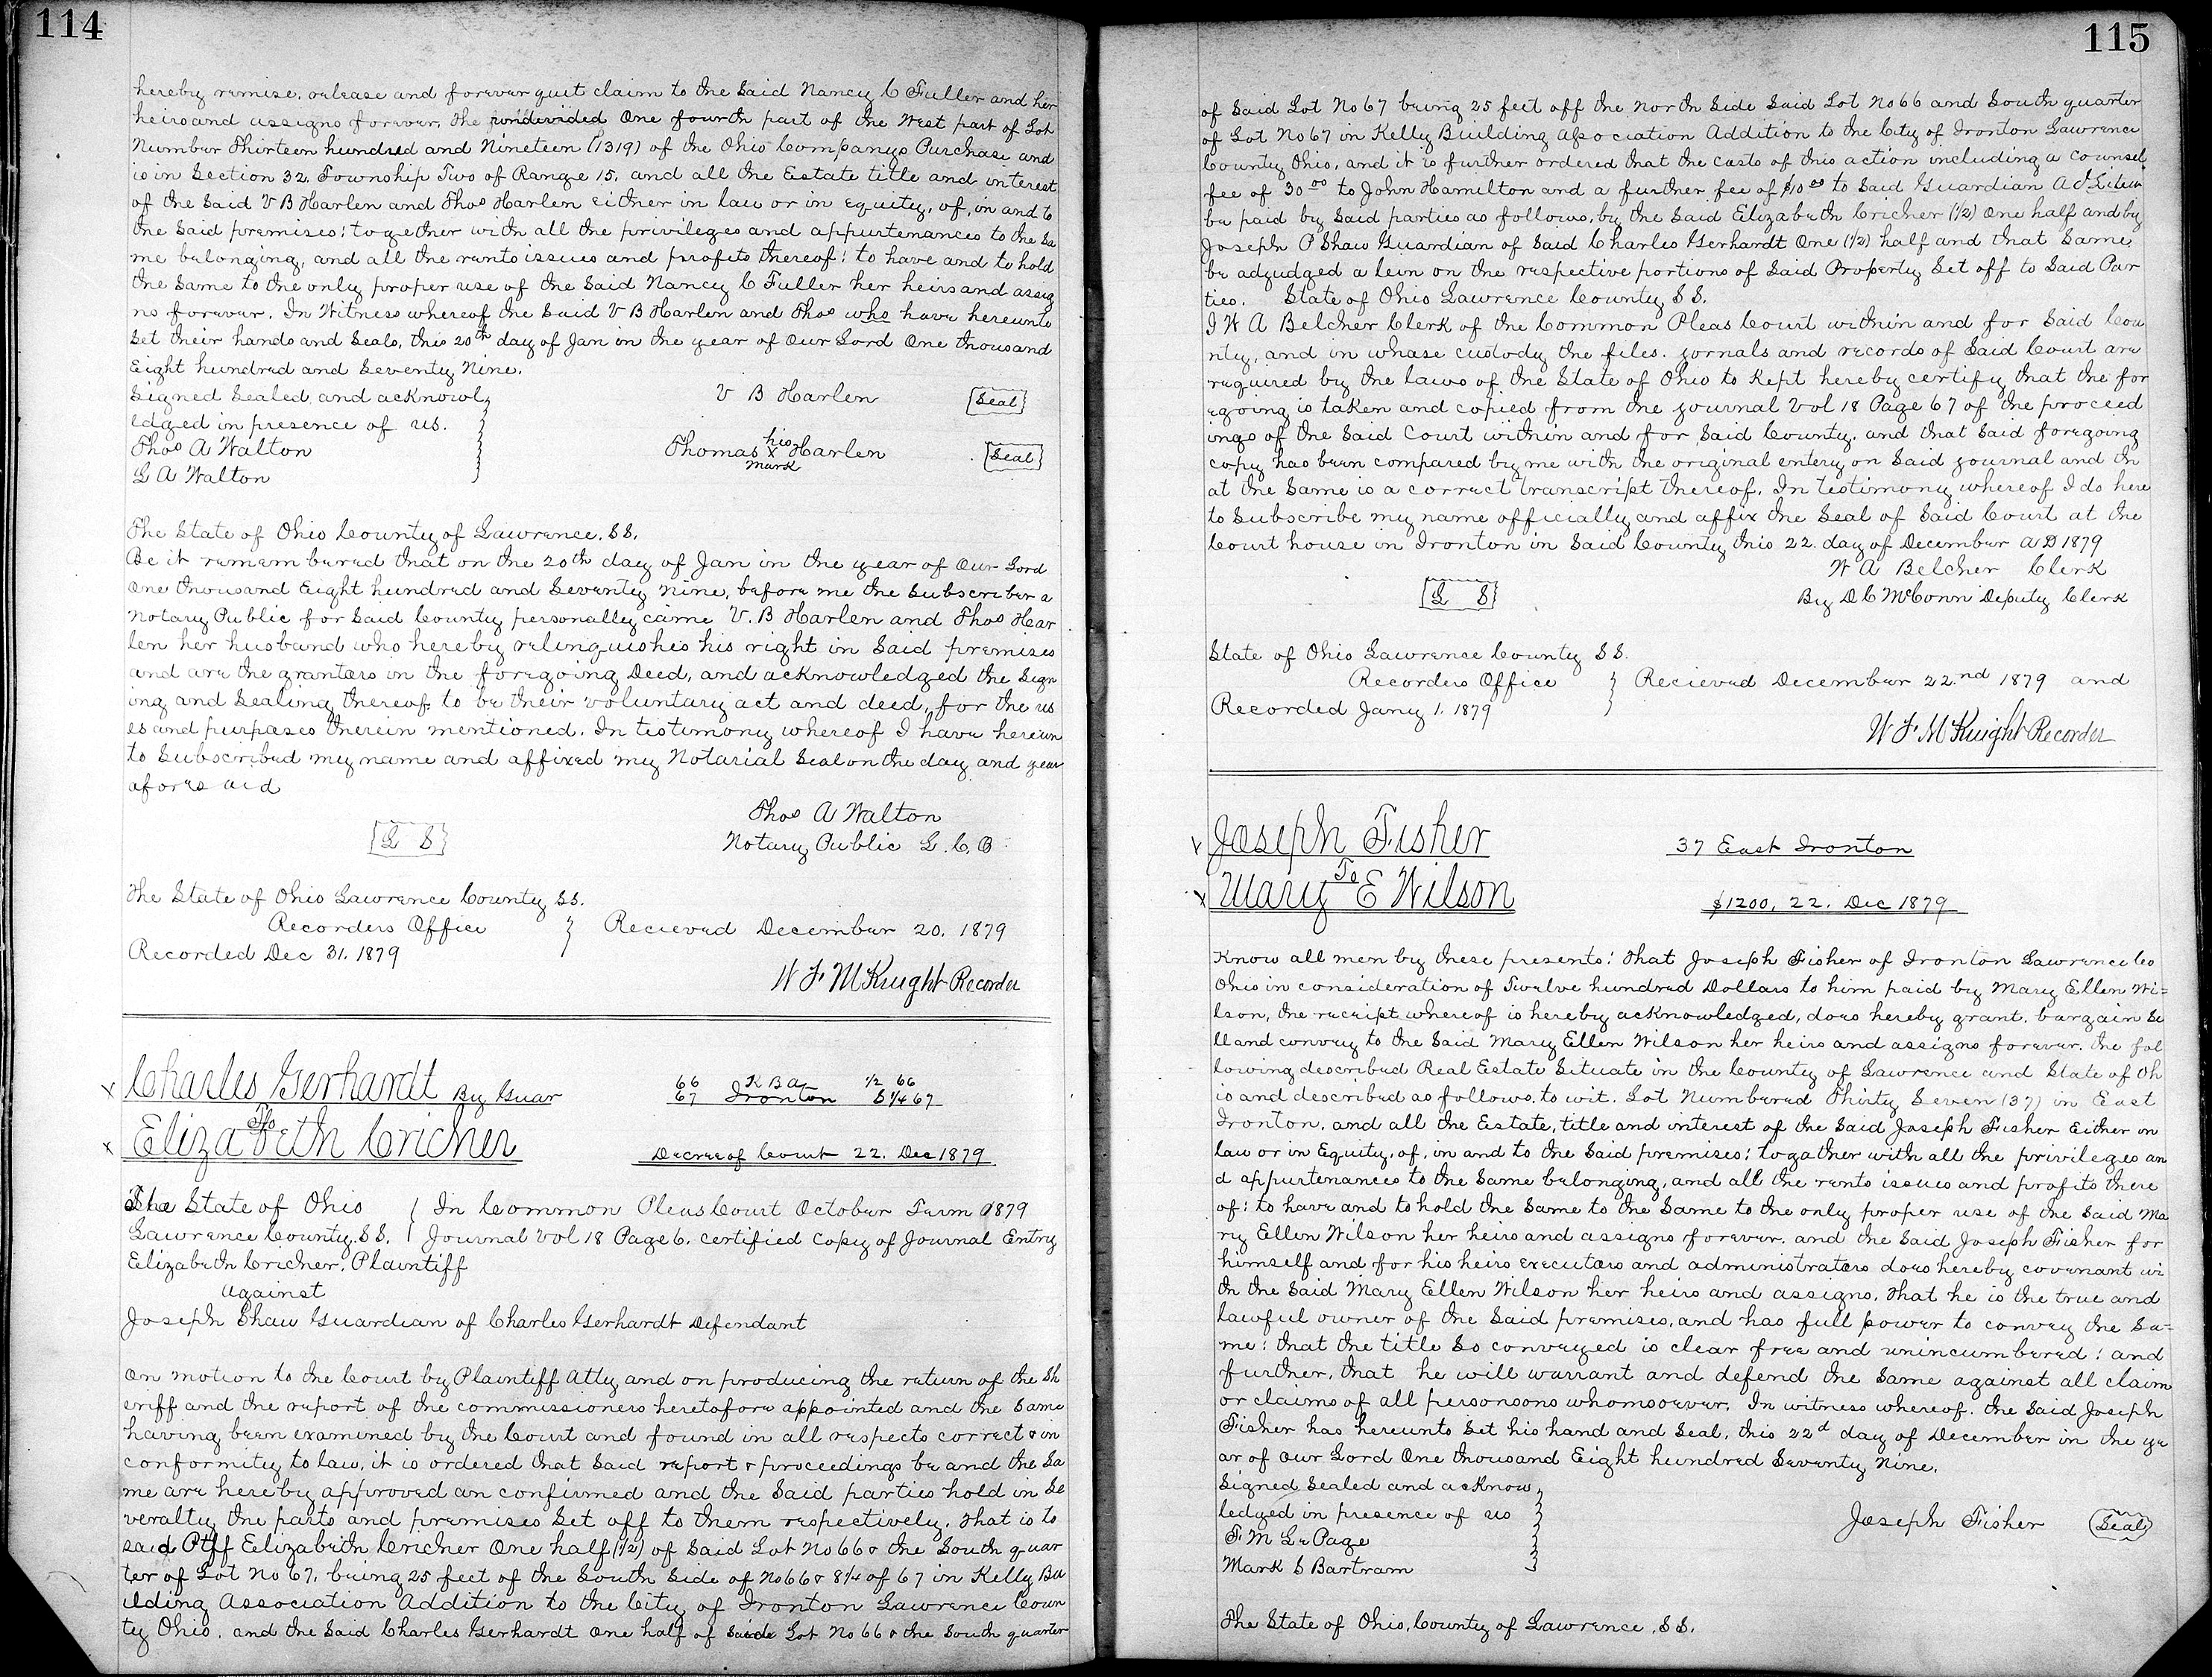 114
hereby remise, release and forever quit claim to the Said Nancy C Fuller and her
heirs and assigns forever, the undivided One fourth part of the West part of Lot
Number Thirteen hundred and Nineteen (1319) of the Ohio Companys Purchase and
is in Section 32. Township Two of Range 15, and all the Estate title and interest
of the Said V B Harlen and Thos Harlen either in law or in equity, of, in and to
the Said premises: together with all the privileges and appurtenances to the Sa
me belonging, and all the rents issues and profits thereof: to have and to hold
the Same to the only proper use of the Said Nancy C Fuller her heirs and assig
ns forever. In Witness whereof the Said V B Harlen and Thos who have hereunto
Set their hands and Seals, this 20th day of Jan in the year of Our Lord One thousand
Eight hundred and Seventy Nine.
Signed Sealed and acknowl
edged in presence of us.
Thos A Walton
L A Walton
V B Harlen [Seal]
Thomas his x mark Harlen [Seal]
The State of Ohio County of Lawrence, SS,
Be it remembered that on the 20th day of Jan in the year of Our Lord
One thousand Eight hundred and Seventy nine, before me the Subscriber a
Notary Public for Said County personally came V. B Harlen and Thos Har
len her husband who hereby relinquishes his right in Said premises
and are the grantors in the foregoing Deed, and acknowledged the Sign
ing and Sealing thereof, to be their voluntary act and deed, for the us
es and purposes therein mentioned. In testimony whereof I have hereun
to Subscribed my name and affixed my Notarial Seal on the day and year
aforesaid
[L S]
Thos A Walton
Notary Public L. C, O
The State of Ohio Lawrence County SS.
Recorders Office } Recieved December 20. 1879
Recorded Dec 31. 1879
W F McKnight Recorder
Charles Gerhardt By Guar
To
Elizabeth Cricher
66 K B A 1/2 66
67 Ironton S 1/4 67
Decree of Court 22. Dec 1879
The State of Ohio { In Common Pleas Court October Term 1879
Lawrence County. SS. { Journal Vol 18 Page 6. certified Copy of Journal Entry
Elizabeth Cricher. Plaintiff
against
Joseph Shaw Guardian of Charles Gerhardt Defendant
On motion to the Court by Plaintiff Atty and on producing the return of the Sh
eriff and the report of the commissioners heretofore appointed and the Same
having been examined by the Court and found in all respects correct & in
conformity to law, it is ordered that Said report & proceedings be and the Sa
me are hereby approved an confirmed and the Said parties hold in Se
veralty the parts and premises Set off to them respectively. that is to
said Ptff Eelizabeth Cricher One half (1/2) of Said Lot No 66 & the South quar
ter of Lot No 67. being 25 feet of the South Side of No 66 & 8 1/4 of 67 in Kelly Bu
ilding Association Addition to the City of Ironton Lawrence Coun
ty Ohio. and the Said Charles Gerhardt One half of Saide Lot No 66 & the South quarter
115
of Said Lot No 67 being 25 feet off the North Side Said Lot No 66 and South quarter
of Lot No 67 in Kelly Building Association Addition to the City of Ironton Lawrence
County Ohio, and it is further ordered that the costs of this action including a counsel
fee of 30.00 to John Hamilton and a further fee of $10.00 to Said Guardian Ad Litem
be paid by Said parties as follows, by the Said Elizabeth Cricher (1/2) One half and by
Joseph P Shaw Guardian of Said Charles Gerhardt One (1/2) half and that Same
be adjudged a lein on the respective portions of Said Property Set off to Said Par
ties. State of Ohio Lawrence County SS.
I W A Belcher Clerk of the Common Pleas Court within and for Said Cou
nty, and in whose custody the files. jornals and records of Said Court are
required by the laws of the State of Ohio to Kept hereby certify that the for
egoing is taken and copied from the journal Vol 18 Page 67 of the proceed
ings of the Said Court within and for Said County. and that Said foregoing
copy has been compared by me with the original entery on Said journal and th
at the Same is a correct transcript thereof. In testimony whereof I do here
to Subscribe my name officially and affix the Seal of Said Court at the
Court house in Ironton in Said County this 22. day of December AD 1879
W A Belcher Clerk
[L S] By D C McConn Deputy Clerk
State of Ohio Lawrence County SS.
Recorders Office } Recieved December 22.nd 1879 and
Recorded Jany 1. 1879
W F McKnight Recorder
Joseph Fisher
To
Mary E Wilson
37 East Ironton
$1200, 22. Dec 1879
Know all men by these presents: that Joseph Fisher of Ironton Lawrence Co
Ohio in consideration of Twelve hundred Dollars to him paid by Mary Ellen Wi=
lson, the receipt whereof is hereby acknowledged, does hereby grant. bargain Se
ll and convey to the Said Mary Ellen Wilson her heirs and assigns forever. the fol
lowing described Real Estate Situate in the County of Lawrence and State of Oh
io and described as follows, to wit. Lot Numbered Thirty Seven (37) in East
Ironton. and all the Estate, title and interest of the Said Joseph Fisher Either in
law or in Equity, of, in and to the Said premises; togather with all the privileges an
d appurtenances to the Same belonging, and all the rents issues and profits there
of: to have and to hold the Same to the Same to the only proper use of the Said Ma
ry Ellen Wilson her heirs and assigns forever. and the Said Joseph Fisher for
himself and for his heirs executors and administrators does hereby covenant wi
th the Said Mary Ellen Wilson her heirs and assigns, that he is the true and
lawful owner of the Said premises, and has full power to convey the Sa=
me: that the title So conveyed is clear free and unincumbered: and
further, that he will warrant and defend the Same against all claim
or claims of all personsons whomsoever. In witness whereof. the Said Joseph
Fisher has hereunto Set his hand and Seal, this 22d day of December in the ye
ar of our Lord One thousand Eight hundred Seventy Nine.
Signed Sealed and acknow
ledged in presence of us
F M LePage
Mark S Bartram
Joseph Fisher (Seal)
The State of Ohio, County of Lawrence, SS.